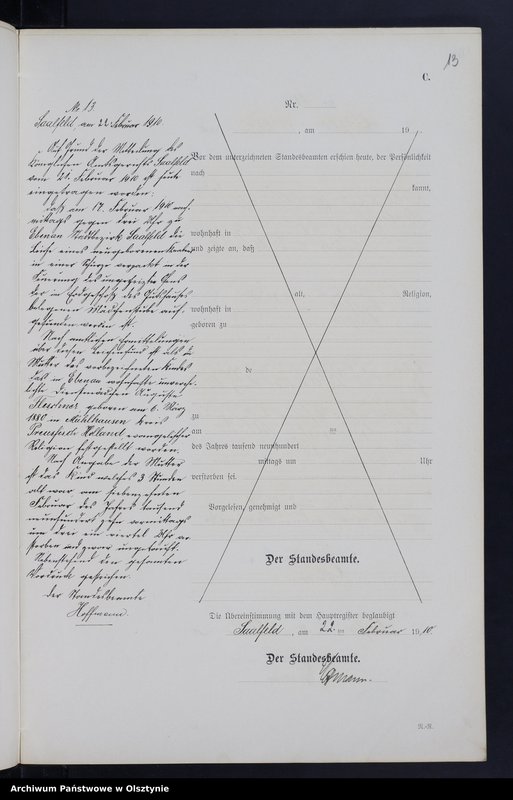 13
C.
No 13
Saalfeld am 22 Februar 1910.
Auf Grund der Mitteilung des
Königlichen Amtsgerichts Saalfeld
vom 21. Februar 1910 ist heute
eingetragen worden:
daß am 17. Februar 1910 nach-
mittags gegen drei Uhr zu
Ebenau Stadtbezirk Saalfeld die
Leiche eines neugeborenen Knaben
in einer Schürze verpackt in der
Feuerung des
der im Erdgeschoß des Gutshauses
belegenen Mädchenstube auf-
gefunden worden ist.
Nach amtlichen Ermittelungen
über diesen Leichenfund ist als die
Mutter des vorbezeichneten Kindes
das in Ebenau wohnhafte unverehe-
lichte Dienstmädchen Auguste
geboren am 6. März
1880 in Mühlhausen Kreis
Preussisch Holland evangelischer
Religion festgestellt worden.
Nach Angabe der Mutter
ist das Kind welches 3 Stunden
alt war am siebenzehnten
Februar des Jahres tausend
neunhundert zehn vormittags
um drei ein viertel Uhr ver-
storben und zwar ungetauft.
Nebenstehend den gesamten
Vordruck gestrichen.
Der Standesbeamte
Hoffmann.
Nr.
, am 19 .
Vor dem unterzeichneten Standesbeamten erschien heute, der Persönlichkeit
nach
kannt,
wohnhaft in
und zeigte an, daß
alt, Religion,
wohnhaft in
geboren zu
de
zu
am
des Jahres tausend neunhundert
mittags um Uhr
verstorben sei.
Vorgelesen, genehmigt und
Der Standesbeamte.
Die Übereinstimmung mit dem Hauptregister beglaubigt
Saalfeld, am 22 ten Februar 1910
Der Standesbeamte.
N.-R.
Archiwum Państwowe w Olsztynie